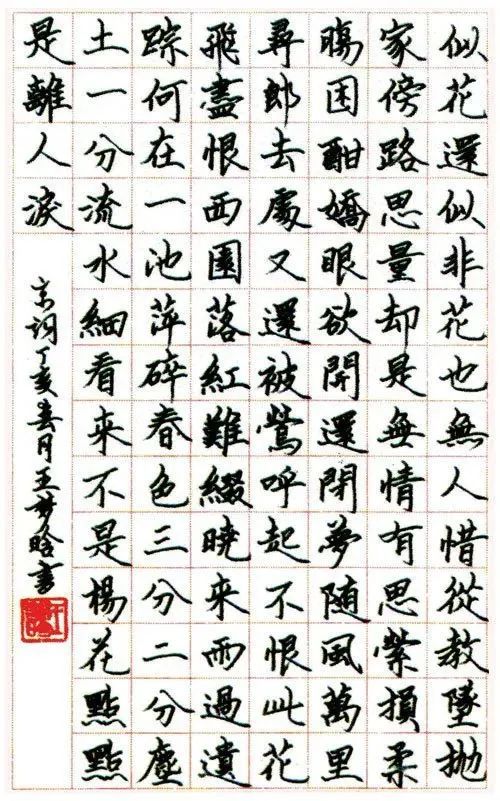 似花還似非花也無人惜從教墜拋
家傍路思量却是無情有思縈損柔
腸困酣嬌眼欲開還閉夢随風萬里
尋郎去處又還被鶯呼起不恨此花
飛盡恨西園落紅難綴曉來雨過遺
踪何在一池萍碎春色三分二分塵
土一分流水細看來不是楊花點點
是離人淚
宋詞丁亥春月王梦晗書